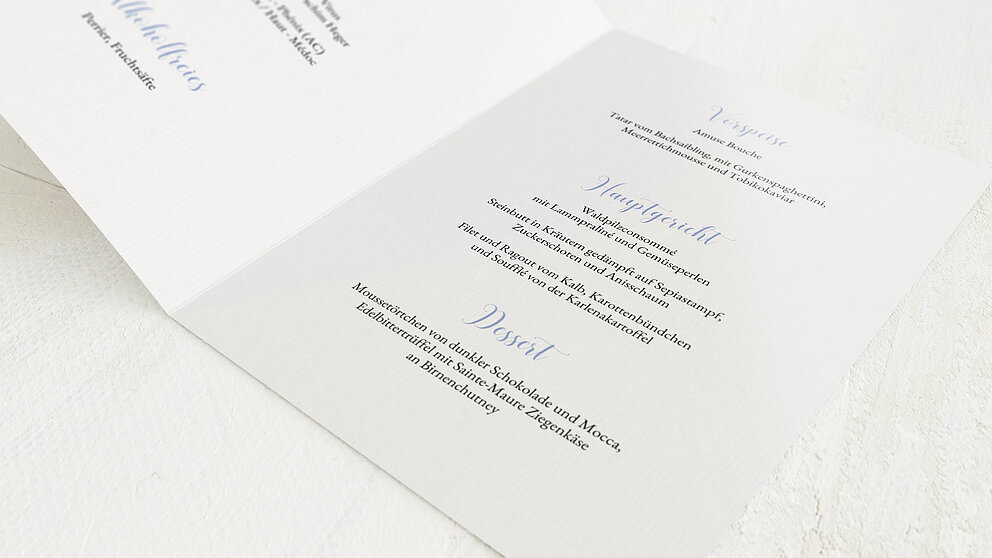 Hager
Phénix (AC)
Haut - Médoc
Alkoholfreies
Perrier, Fruchtsäfte
Vorspeise
Amuse Bouche
Tatar vom Bachsaibling, mit Gurkenspaghettini,
Meerrettichmousse und Tobikokaviar
Hauptgericht
Waldpilsconsommé
mit Lammpraliné und Gemüseperlen
Steinbutt in Kräutern gedämpft auf Sepiastampf,
Zuckerschoten und Anisschaum
Filet und Ragout vom Kalb, Karottenbündchen
und Soufflé von der Karlenakartoffel
Dessert
Moussetörtchen von dunkler Schokolade und Mocca,
Edelbittertrüffel mit Sainte-Maure Ziegenkäse
an Birnenchutney